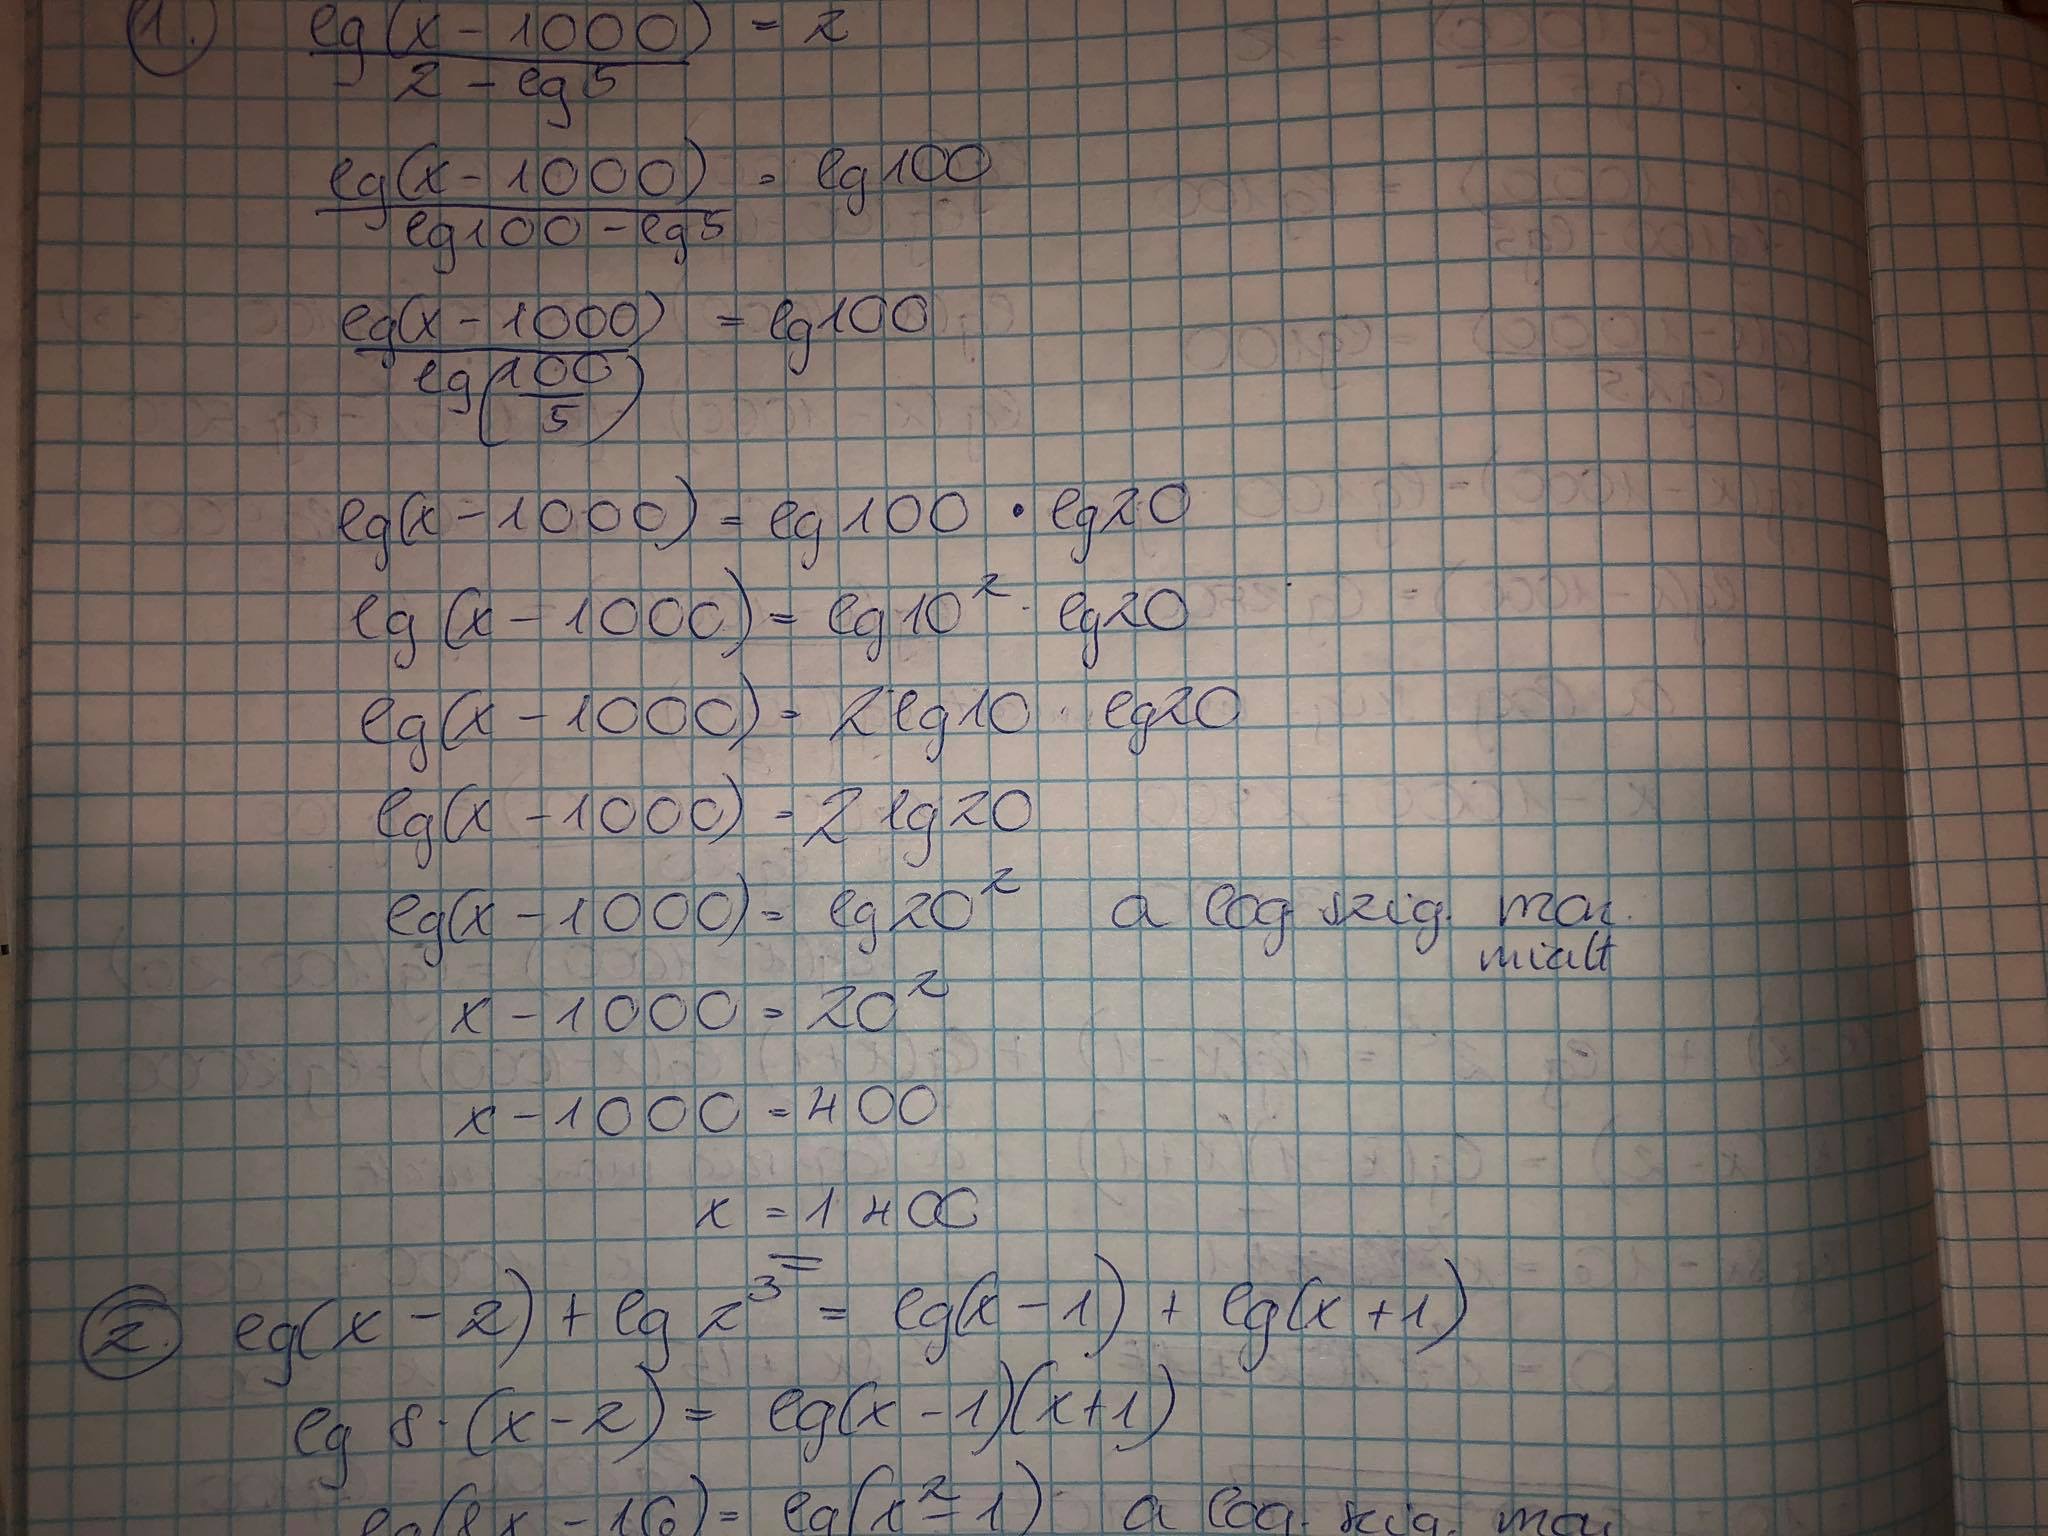 1. lg(x-1000) = 2
2-lg5
lg(x-1000) = lg100
lg100-lg5
lg(x-1000) = lg100
lg(100
5)
lg(x-1000) = lg100 · lg20
lg(x-1000) = lg10² · lg20
lg(x-1000) = 2lg10 · lg20
lg(x-1000) = 2lg20
lg(x-1000) = lg20² a log szig. mon.
miatt
x-1000 = 20²
x-1000 = 400
x = 1400
2. lg(x-2) + lg2³ = lg(x-1) + lg(x+1)
lg 8·(x-2) = lg(x-1)(x+1)
lg(8x-16) = lg(x²-1) a log. szig. mon